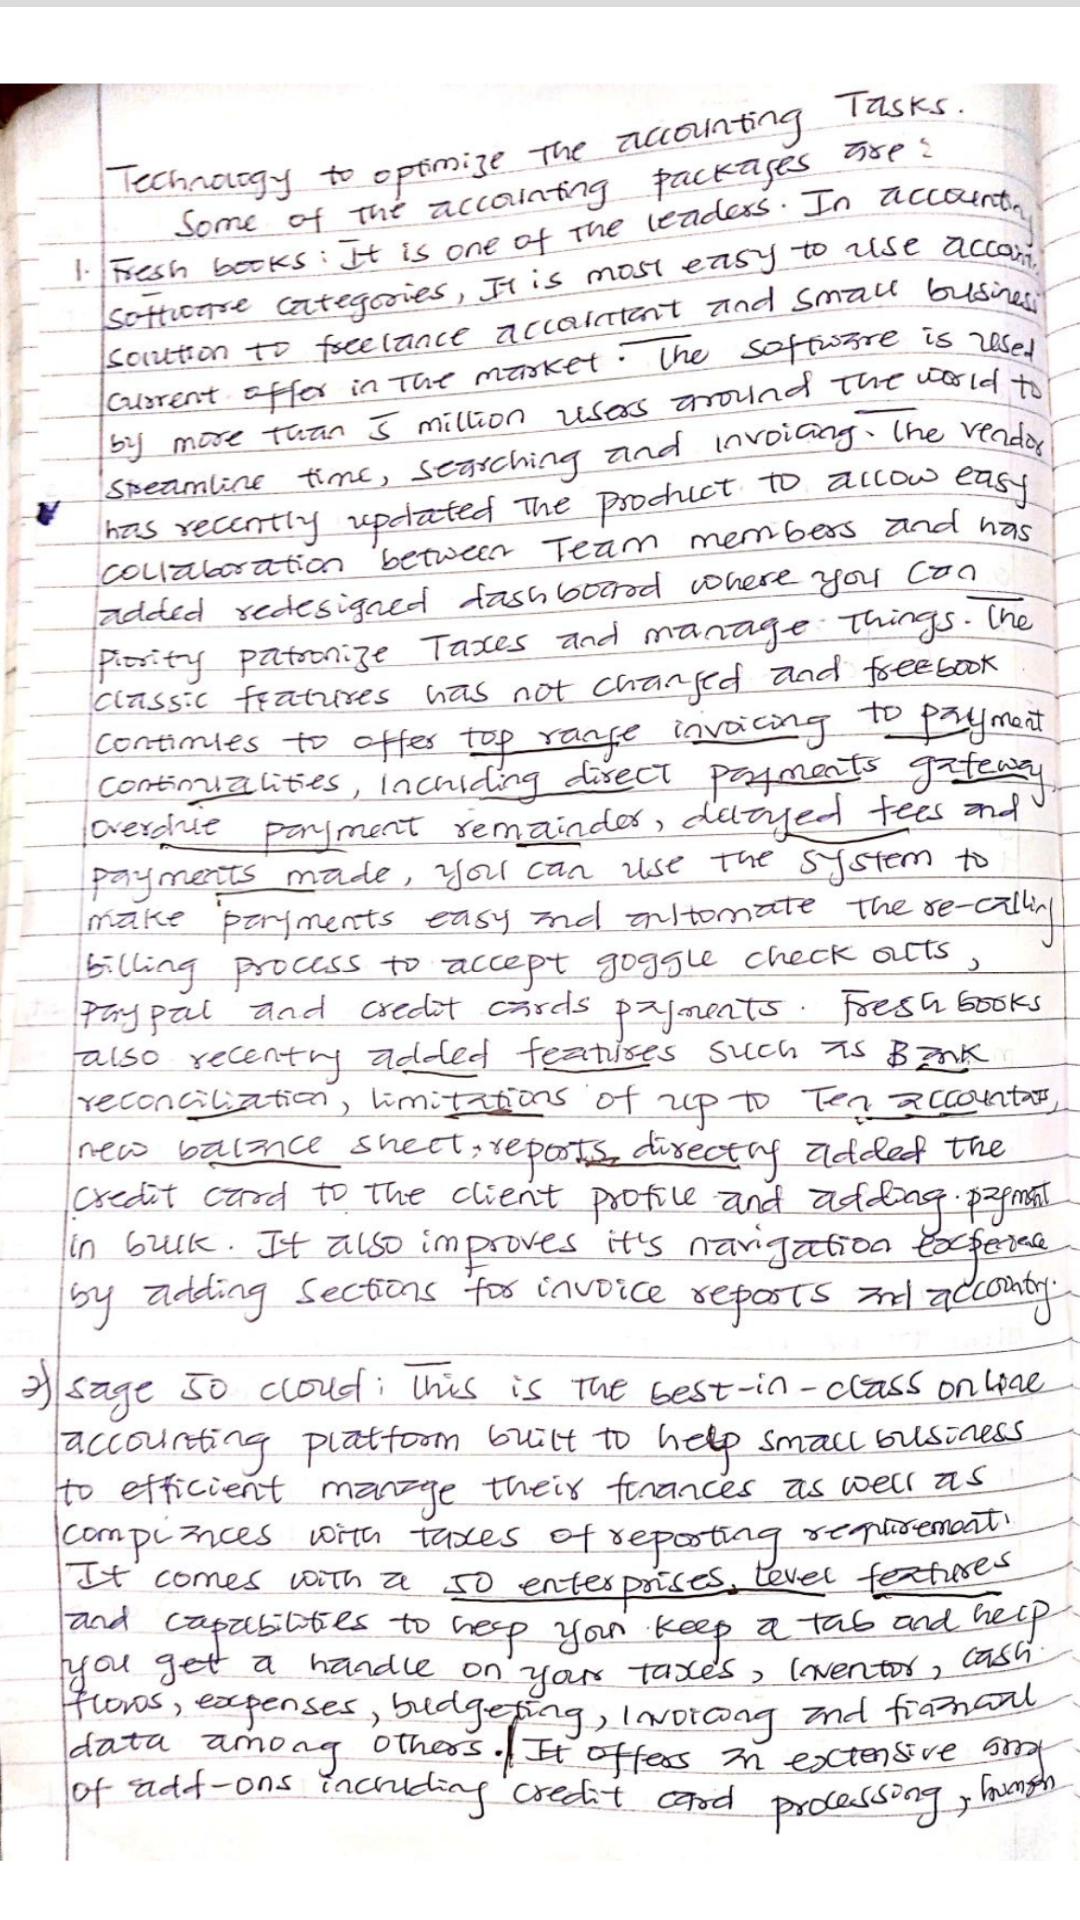 Technology to optimize The accounting Tasks.
Some of the accounting packages are:
1. Fresh books: It is one of The leaders. In accounting
software categories, It is most easy to use account
solution to freelance accountant and small business
current offer in The market. The software is used
by more than 5 million users around the world to
streamline time, searching and invoicing. The vendor
has recently updated The product to allow easy
collaboration between Team members and has
added redesigned dashboard where you can
piority patronize Taxes and manage Things. The
classic features has not changed and freebook
continues to offer top range invoicing to payment
continualities, including direct payments gateway,
overdue payment remainder, delayed fees and
payments made, you can use the system to
make payments easy and automate The re-calling
billing process to accept goggle check outs,
Paypal and credit cards payments. Fresh books
also recently added features such as Bank
reconciliation, limitations of up to Ten accountats,
new balance sheet, reports, directly added the
credit card to the client profile and adding payment
in bulk. It also improves it's navigation experience
by adding sections for invoice reports and accounting.
2) Sage 50 cloud: This is The best-in-class online
accounting platform built to help small business
to efficient manage their finances as well as
compliances with taxes of reporting requirement.
It comes with a 50 enterprises, level features
and capabilities to help your keep a tab and help
you get a handle on your taxes, Inventor, cash
flows, expenses, budgeting, Invoicing and financial
data among others. It offers an extensive array
of add-ons including credit card processing, human